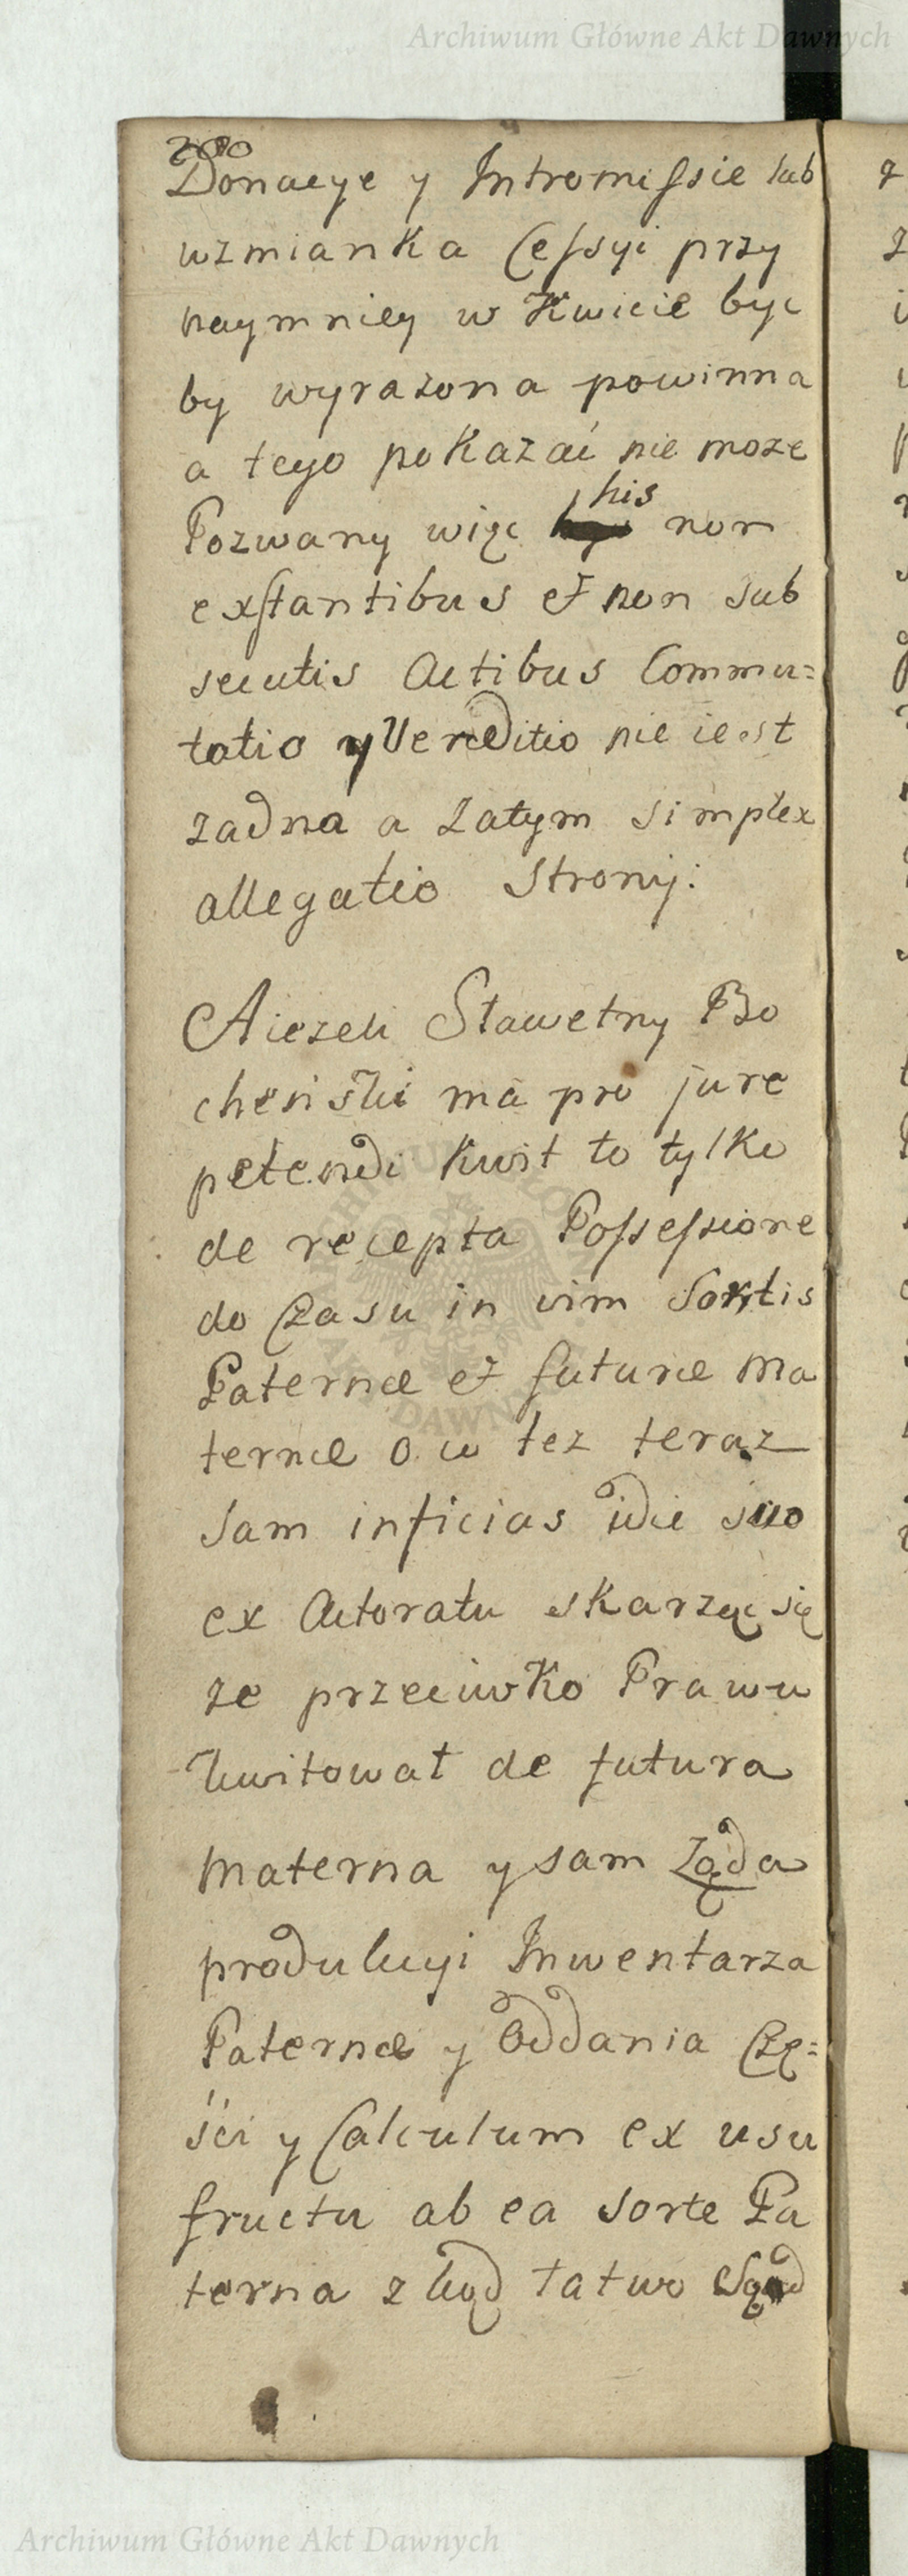 Archiwum Główne Akt Dawnych
280
Donacye y Intromissie lub
wzmianka Cessyi przy
naymniey w Kwicie byc
by wyrazona powinna
a tego pokazać nie moze
his
Pozwany więc non
exstantibus et non sub
secutis Actibus Commu=
tatio y Venditio nie iest
zadna a zatym simplex
allegatio Strony:
A iezeli Sławetny Bo
cheński ma pro jure
petendi kwit to tylko
de recepta Possessione
do Czasu in vim Sortis
Paternæ et futuræ Ma
ternæ o co tez teraz
Sam inficias idie suo
ex Actoratu skarząc się
ze przeciwko Prawu
kwitował de futura
Materna y sam Ząda
produkcyi Inwentarza
Paternæ y Oddania Czę=
ści y Calculum ex usu
fructu ab ea Sorte Pa
terna z kąd łatwo Sąd
Archiwum Główne Akt Dawnych